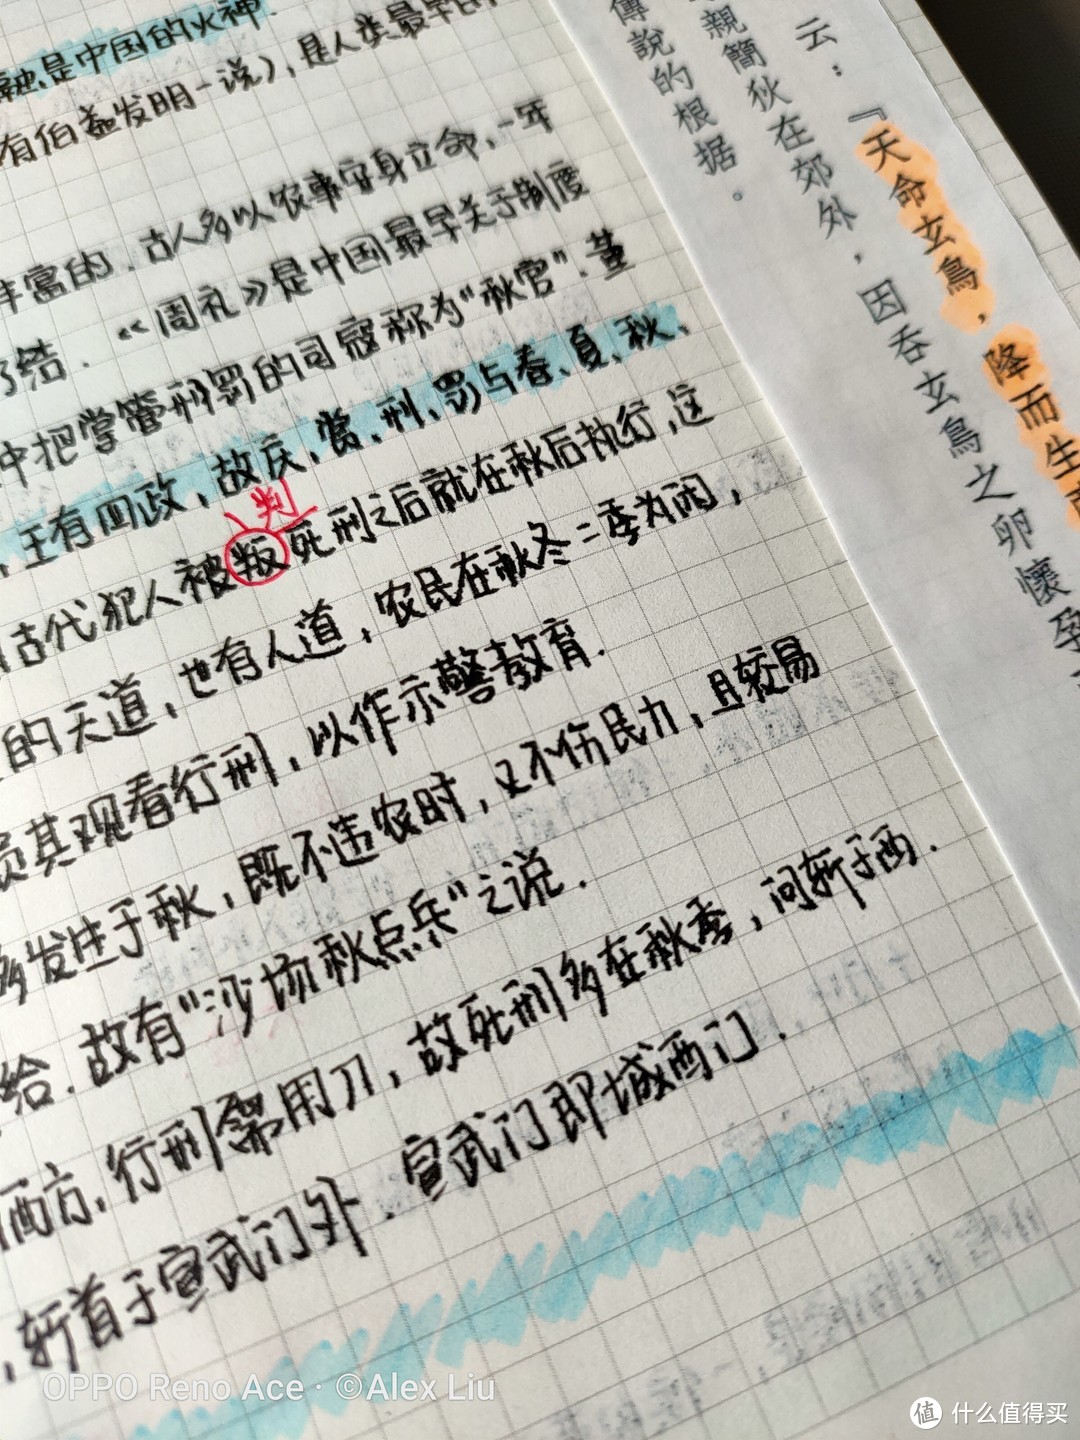 融,是中国的火神.
有伯益发明一说),是人类最早的
丰富的.古人多以农事安身立命,一年
了结.《周礼》是中国最早关于制度
中把掌管刑罚的司寇称为"秋官".董
,王有四政,故庆,赏,刑,罚与春、夏、秋、
判
古代犯人被叛死刑之后就在秋后执行,这
的天道,也有人道,农民在秋冬二季为闲,
员其观看行刑,以作示警教育.
多发生于秋,既不违农时,又不伤民力,且较易
给.故有"沙场秋点兵"之说.
西方,行刑需用刀,故死刑多在秋季,问斩于西.
,斩首于宣武门外.宣武门即城西门.
云:『天命玄鳥,降而生
親簡狄在郊外,因吞玄鳥之卵懷孕
傳說的根据。
OPPO Reno Ace · ©Alex Liu
值 什么值得买